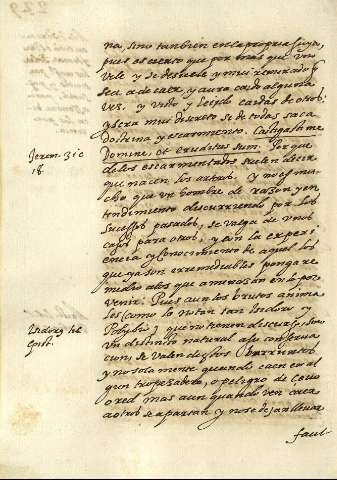 na, sino tambien en la propria suya,
pues es cierto que por mas que uno
vele y se desvele y mui remirado
sea a de caer, y aura caido alguna
vez, y visto y leydo caidas de otros;
y sera mui discreto si de todas saca
doctrina y escarmiento. Castigasti me
Jerem 31 c
Domine, et eruditus sum. Porque
18.
de los escarmentados suelen decir
que nacen los artros. y no es mu
cho que un hombre de razon y en
tendimiento discurriendo por los
sucessos pasados, se valga de unos
casos para otros, y con la experi
encia y conocimiento de aquellos
que ya son irremediables ponga re
medio a los que amenazan en lo por
venir. Pues aun los brutos anima
les (como lo notan san Isidoro y
Polybio) que no tienen discurso, sino
un distincto natural a su conserva
cion, se valen destos
y no solo mente quando caen en al
gun tropezadero, o peligro de
o red mas aun quando ven caer
a otros se apartan y no se dexan llevar
faul-